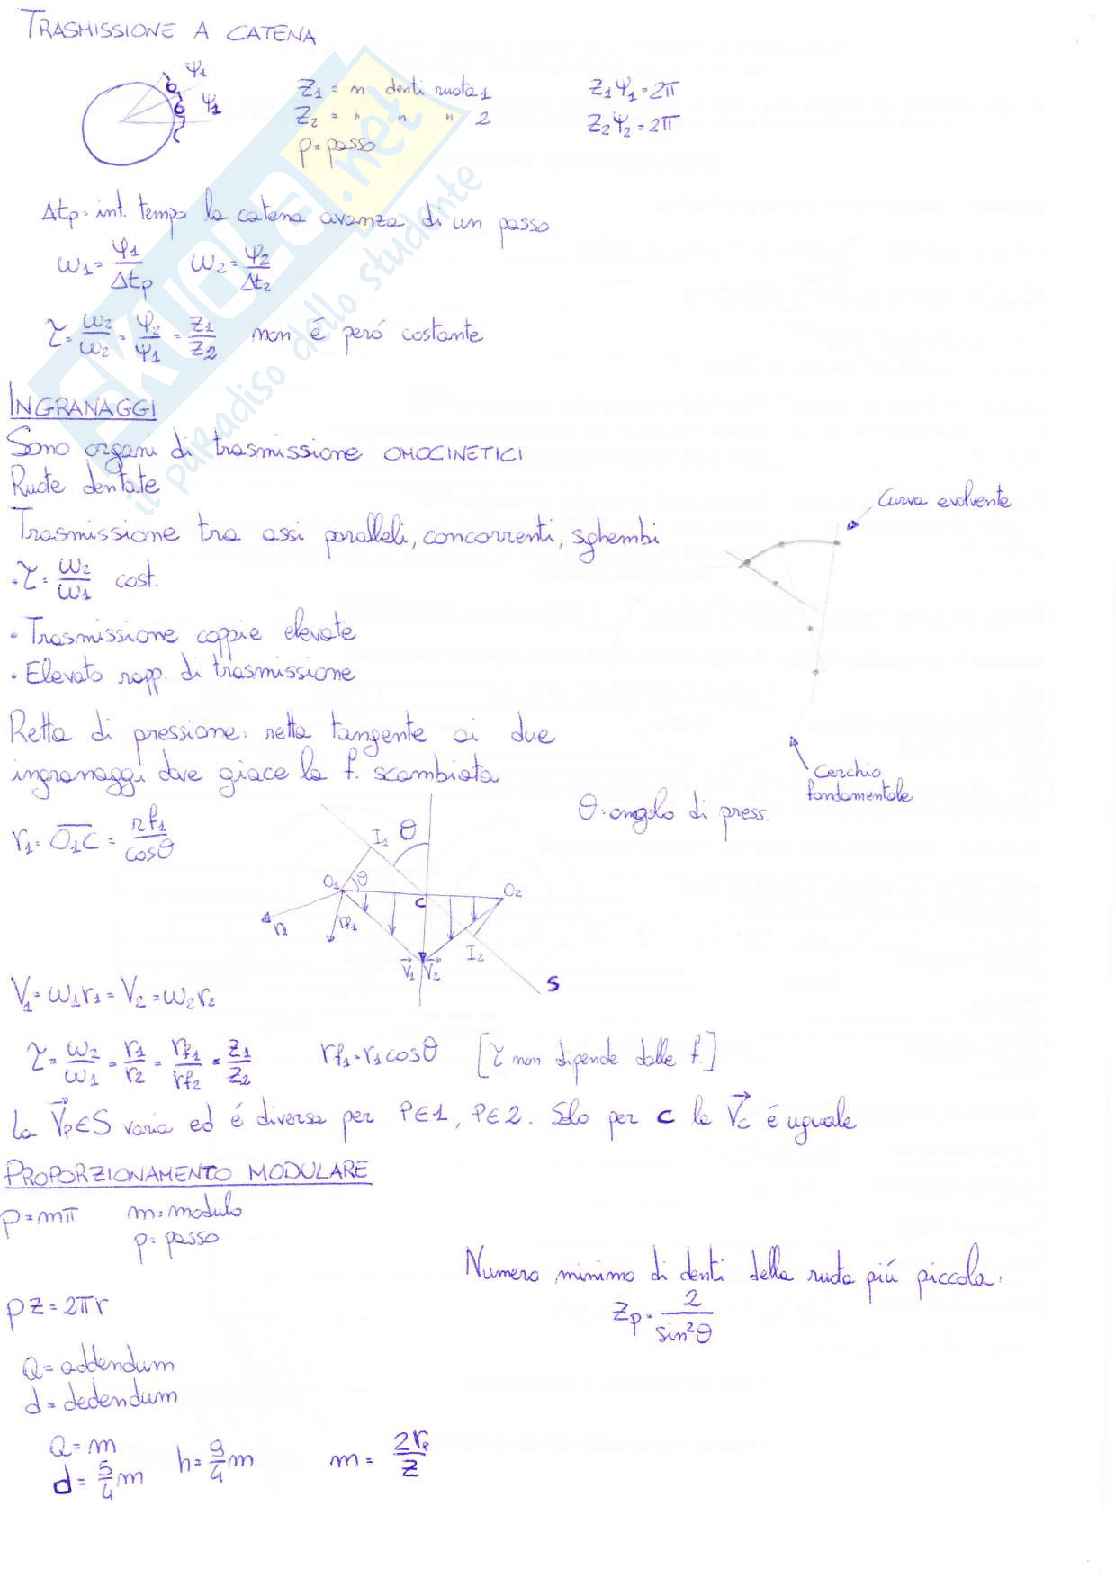 TRASMISSIONE A CATENA
φ1
φ1
Z1 = n denti ruota 1
Z2 = " " " 2
p = passo
Z1 φ1 = 2π
Z2 φ2 = 2π
SKUOLA.net
il paradiso dello studente
Δtp = int. tempo la catena avanza di un passo
ω1 = φ1/Δtp ω2 = φ2/Δt2
τ = ω2/ω2 = φ2/φ1 = Z1/Z2 non é peró costante
INGRANAGGI
Sono organi di trasmissione OMOCINETICI
Ruote dentate
Trasmissione tra assi paralleli, concorrenti, sghembi
· τ = ω2/ω1 cost.
· Trasmissione coppie elevate
· Elevato rapp. di trasmissione
Curva evolvente
Cerchio fondamentale
Retta di pressione: retta tangente ai due
ingranaggi dove giace la f. scambiata
θ = angolo di press.
r1 = O1C = rf1/cosθ
I1 θ
O1 θ C O2
n rf1
V1 V2 I2
S
V1 = ω1r1 = V2 = ω2r2
τ = ω2/ω1 = r1/r2 = rf1/rf2 = Z1/Z2 rf1 = r1cosθ [τ non dipende dalle f]
la Vp∈S varia ed é diversa per P∈1, P∈2. Solo per C la Vc é uguale
PROPORZIONAMENTO MODULARE
p = mπ m = modulo
p = passo
Numero minimo di denti della ruota piú piccola:
Zp = 2/sin²θ
pZ = 2πr
a = addendum
d = dedendum
a = m
d = 5/4 m h = 9/4 m m = 2r/Z